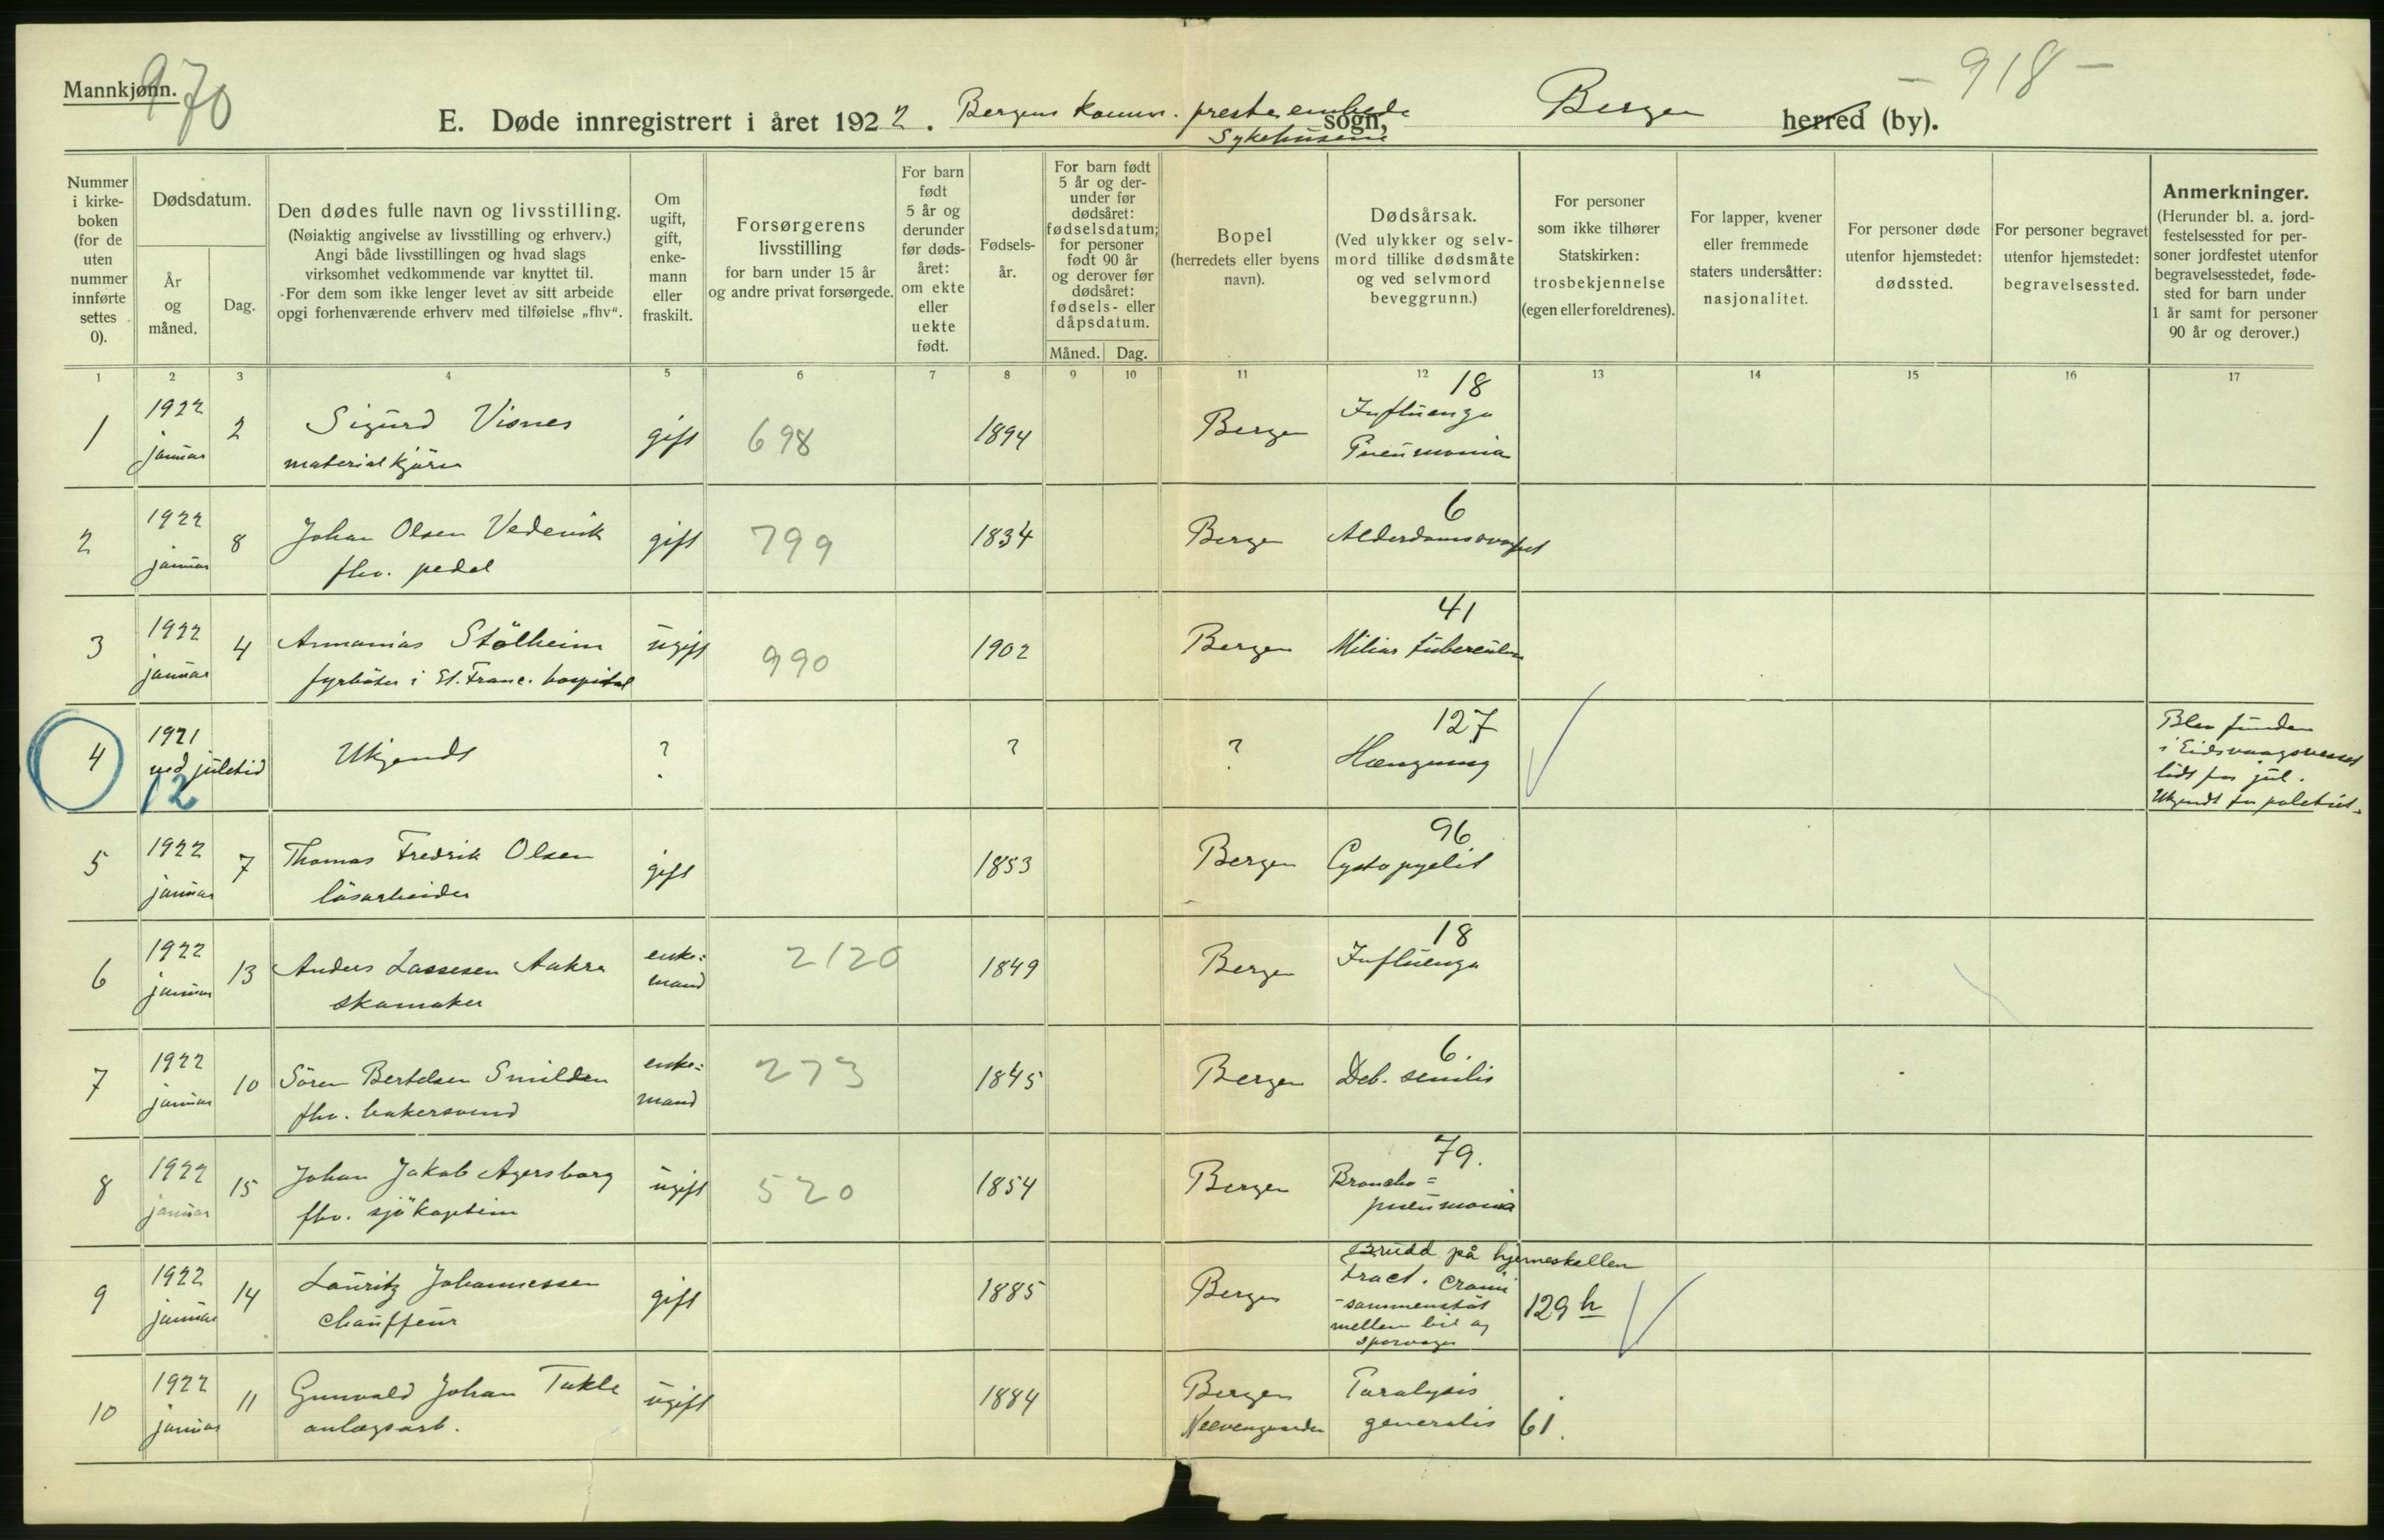 Mannkjønn.
970
- 918 -
E. Døde innregistrert i året 1922. Bergens komm. presteembede sogn, Bergen herred (by).
Sykehusene
Nummer i kirke-boken (for de uten nummer innførte settes 0).
Dødsdatum.
År og måned.
Dag.
Den dødes fulle navn og livsstilling.
(Nøiaktig angivelse av livsstilling og erhverv.)
Angi både livsstillingen og hvad slags
virksomhet vedkommende var knyttet til.
-For dem som ikke lenger levet av sitt arbeide
opgi forhenværende erhverv med tilføielse „fhv“.
Om ugift, gift, enke-mann eller fraskilt.
Forsørgerens livsstilling
for barn under 15 år
og andre privat forsørgede.
For barn født 5 år og derunder før døds-året: om ekte eller uekte født.
Fødsels-år.
For barn født 5 år og der-under før dødsåret: fødselsdatum; for personer født 90 år og derover før dødsåret: fødsels- eller dåpsdatum.
Måned.
Dag.
Bopel
(herredets eller byens navn).
Dødsårsak.
(Ved ulykker og selv-mord tillike dødsmåte og ved selvmord beveggrunn.)
For personer som ikke tilhører Statskirken: trosbekjennelse (egen eller foreldrenes).
For lapper, kvener eller fremmede staters undersåtter: nasjonalitet.
For personer døde utenfor hjemstedet: dødssted.
For personer begravet utenfor hjemstedet: begravelsessted.
Anmerkninger.
(Herunder bl. a. jord-festelsessted for per-soner jordfestet utenfor begravelsesstedet, føde-sted for barn under 1 år samt for personer 90 år og derover.)
1 2 3 4 5 6 7 8 9 10 11 12 13 14 15 16 17
1 1922 januar 2 Sigurd Visnes gift 698 1894 Bergen 18 Influenza
materialkjører Pneumonia
2 1922 januar 8 Johan Olsen Vedevik gift 799 1834 Bergen 6
fhv. pedel
3 1922 januar 4 Ammanias Stölheim ugift 990 1902 Bergen 41 Miliar
fyrböter i St. Franc. hospital
4 1921 ved juletid 12 Ukjendt ? ? ? 127 Hængning
Blev funden
i
lidt før jul.
Ukjendt for politiet.
5 1922 januar 7 Thomas Fredrik Olsen gift 1853 Bergen 96 Cystopyelit
lösarbeider
6 1922 januar 13 Anders Lassesen Aakre enke= mand 2120 1849 Bergen 18 Influenza
skomaker
7 1922 januar 10 Sören Bertelsen Smilden enke= mand 273 1845 Bergen 6. Deb. senilis
fhv. bakersvend
8 1922 januar 15 Johan Jakob Agersborg ugift 520 1854 Bergen 79. Broncho=
fhv. sjökaptein pneumonia
9 1922 januar 14 Lauritz Johannessen gift 1885 Bergen Brudd på hjerneskallen
chauffeur Fract. cranii
-sammenstöt
mellem bil og
sporvogn
129 h
10 1922 januar 11 Gunvald Johan Takle ugift 1884 Bergen Paralysis
anlægsarb. Neevengaarden generalis 61.